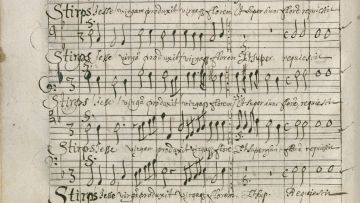 Stirps Jesse virgam produxit virgaqz florem Et super hunc florem requiescit
Stirps Jesse virgā produxit virgaqz florem Et super Requiescit
Stirps Jesse virgā produxit virgaqz florem Et super hunc florē requiescit
Stirps Jesse virgam produxit virgaqz florē Et super hunc florē requiescit
Stirps Jesse virgā produxit virgaqz florem Et sup. Requiescit